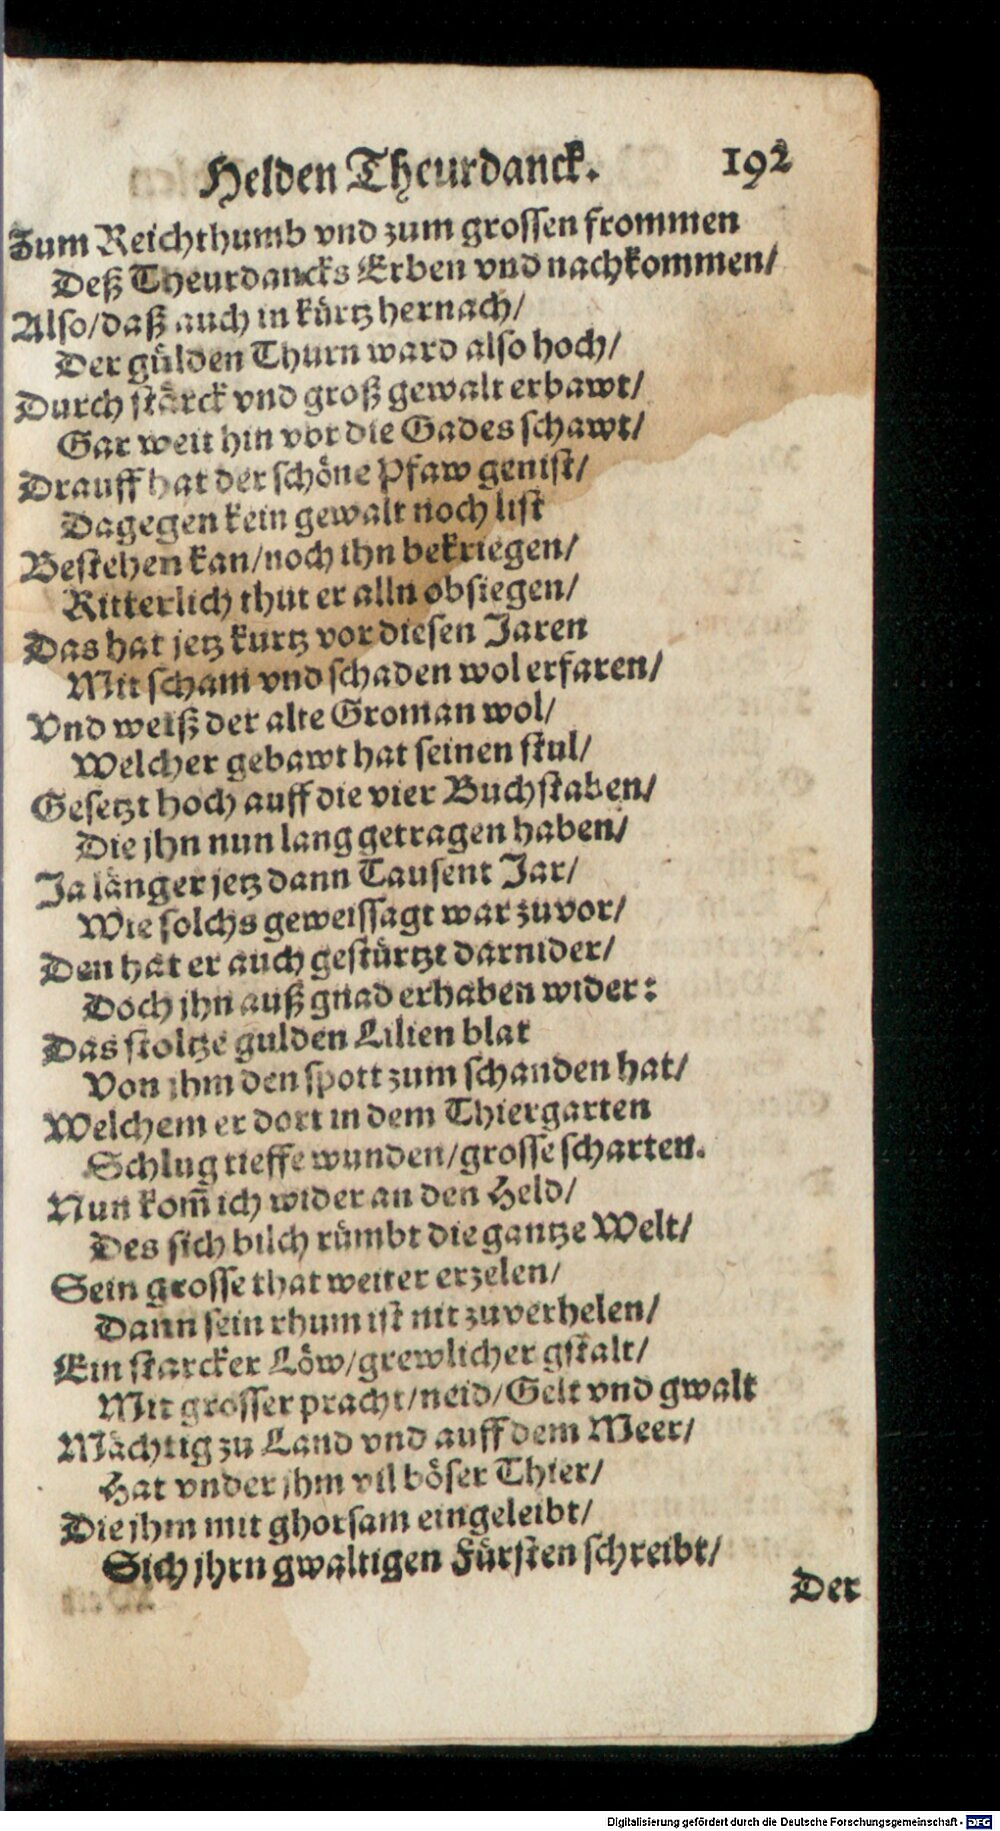 Helden Theurdanck. 192
Zum Reichthumb vnd zum grossen frommen
Deß Theurdancks Erben vnd nachkommen/
Also/daß auch in kürtz hernach/
Der gülden Thurn ward also hoch/
Durch stärck vnd groß gewalt erbawt/
Gar weit hin vor die Gades schawt/
Drauff hat der schöne Pfaw genist/
Dagegen kein gewalt noch list
Bestehen kan/noch ihn bekriegen/
Ritterlich thut er alln obsiegen/
Das hat jetz kurtz vor diesen Jaren
Mit scham vnd schaden wol erfaren/
Vnd weiß der alte Groman wol/
Welcher gebawt hat seinen stul/
Gesetzt hoch auff die vier Buchstaben/
Die jhn nun lang getragen haben/
Ja länger jetz dann Tausent Jar/
Wie solchs geweissagt war zuvor/
Den hat er auch gestürtzt darnider/
Doch jhn auß gnad erhaben wider:
Das stoltze gulden Lilien blat
Von ihm den spott zum schanden hat/
Welchem er dort in dem Thiergarten
Schlug tieffe wunden/grosse scharten.
Nun kom̃ ich wider an den Held/
Des sich bilch rümbt die gantze Welt/
Sein grosse that weiter erzelen/
Dann sein rhum ist nit zuverhelen/
Ein starcker Löw/grewlicher gstalt/
Mit grosser pracht/neid/Gelt vnd gwalt
Mächtig zu Land vnd auff dem Meer/
Hat vnder jhm vil böser Thier/
Die jhm mit ghorsam eingeleibt/
Sich jhrn gwaltigen Fürsten schreibt/
Der
Digitalisierung gefördert durch die Deutsche Forschungsgemeinschaft - DFG